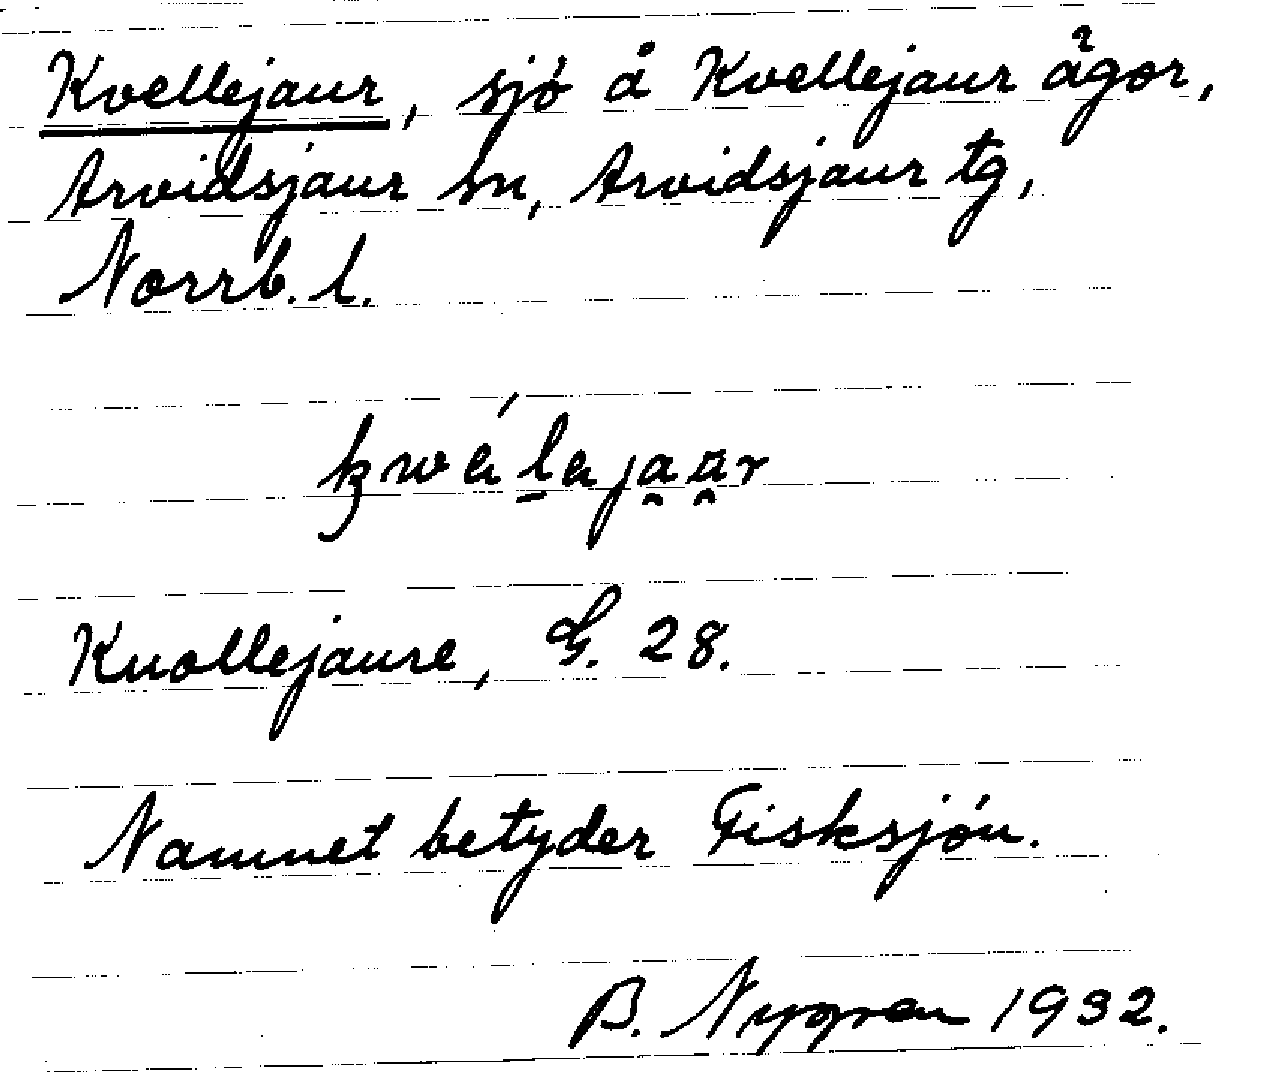 Kvellejaur, sjö å Kvellejaur ägor,
Arvidsjaur sn, Arvidsjaur tg,
Norrb. l.
Kuollejaure, G. 28.
Namnet betyder Fisksjön.
B. Nygren 1932.